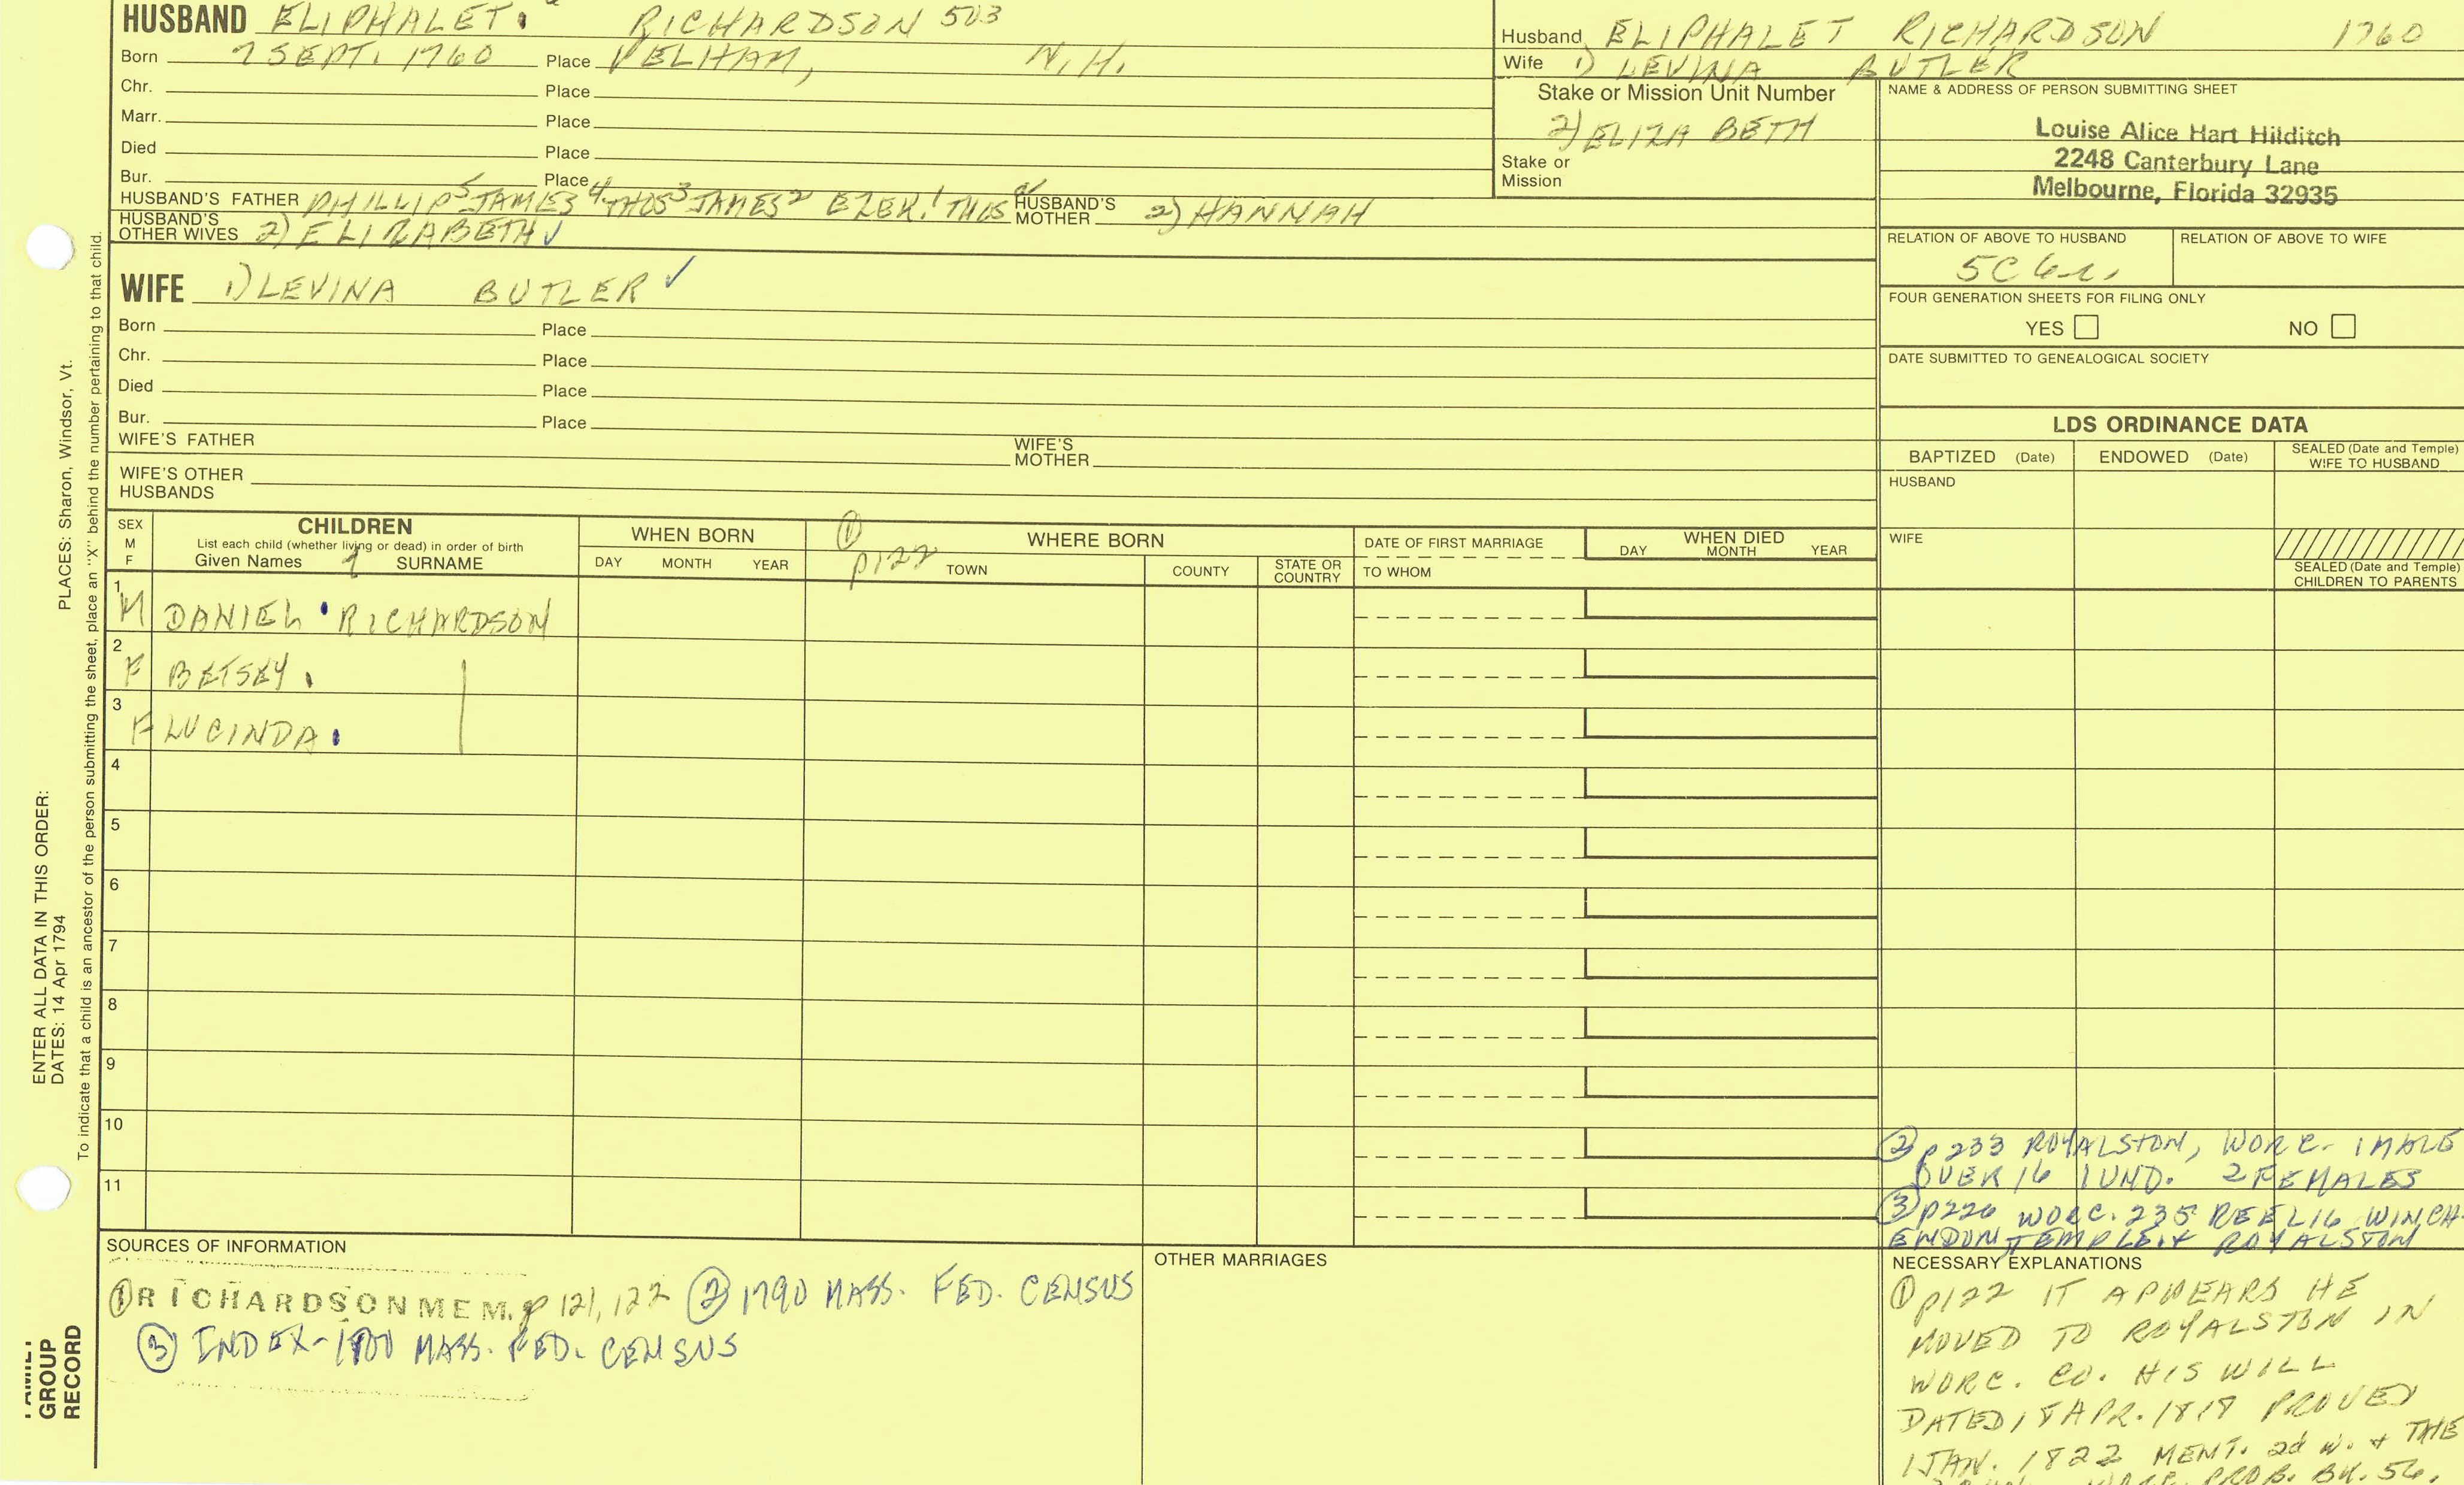 HUSBAND ELIPHALET. RICHARDSON 503
Born 7 SEPT. 1760 Place PELHAM, N.H.
Chr. Place
Marr. Place
Died Place
Bur. Place
HUSBAND'S FATHER PHILLIP5 JAMES4 THOS3 JAMES2 EZEK.1 THOS HUSBAND'S MOTHER 2) HANNAH
HUSBAND'S OTHER WIVES 2) ELIZABETH ✓
WIFE 1) LEVINA BUTLER ✓
Born Place
Chr. Place
Died Place
Bur. Place
WIFE'S FATHER WIFE'S MOTHER
WIFE'S OTHER HUSBANDS
Husband ELIPHALET RICHARDSON 1760
Wife 1) LEVINA BUTLER
Stake or Mission Unit Number
2) ELIZA BETH
Stake or Mission
NAME & ADDRESS OF PERSON SUBMITTING SHEET
Louise Alice Hart Hilditch
2248 Canterbury Lane
Melbourne, Florida 32935
RELATION OF ABOVE TO HUSBAND RELATION OF ABOVE TO WIFE
5C
FOUR GENERATION SHEETS FOR FILING ONLY
YES NO
DATE SUBMITTED TO GENEALOGICAL SOCIETY
LDS ORDINANCE DATA
BAPTIZED (Date) ENDOWED (Date) SEALED (Date and Temple) WIFE TO HUSBAND
HUSBAND
WIFE
SEALED (Date and Temple) CHILDREN TO PARENTS
SEX M F
CHILDREN
List each child (whether living or dead) in order of birth
Given Names 7 SURNAME
WHEN BORN
DAY MONTH YEAR
① p122
WHERE BORN
TOWN COUNTY STATE OR COUNTRY
DATE OF FIRST MARRIAGE
TO WHOM
WHEN DIED
DAY MONTH YEAR
1 M DANIEL RICHARDSON
2 F BETSEY.
3 F LUCINDA.
4
5
6
7
8
9
10
11
② p 233 ROYALSTON, WORC. 1 MALE
OVER 16 1 UND. 2 FEMALES
③ p226 WORC. 235 REEL 16 WINCH-
ENDON, TEMPLE. & ROYALSTON
SOURCES OF INFORMATION
① RICHARDSON MEM. p 121, 122 ② 1790 MASS. FED. CENSUS
③ INDEX-1800 MASS. FED. CENSUS
OTHER MARRIAGES
NECESSARY EXPLANATIONS
① p122 IT APPEARS HE
MOVED TO ROYALSTON IN
WORC. CO. HIS WILL
DATED 18 APR. 1819 PROVED
1 JAN. 1822 MENT. 2d w. & THE
PROB. BK. 56,
PLACES: Sharon, Windsor, Vt.
ENTER ALL DATA IN THIS ORDER:
DATES: 14 Apr 1794
To indicate that a child is an ancestor of the person submitting the sheet, place an "X" behind the number pertaining to that child.
FAMILY
GROUP
RECORD